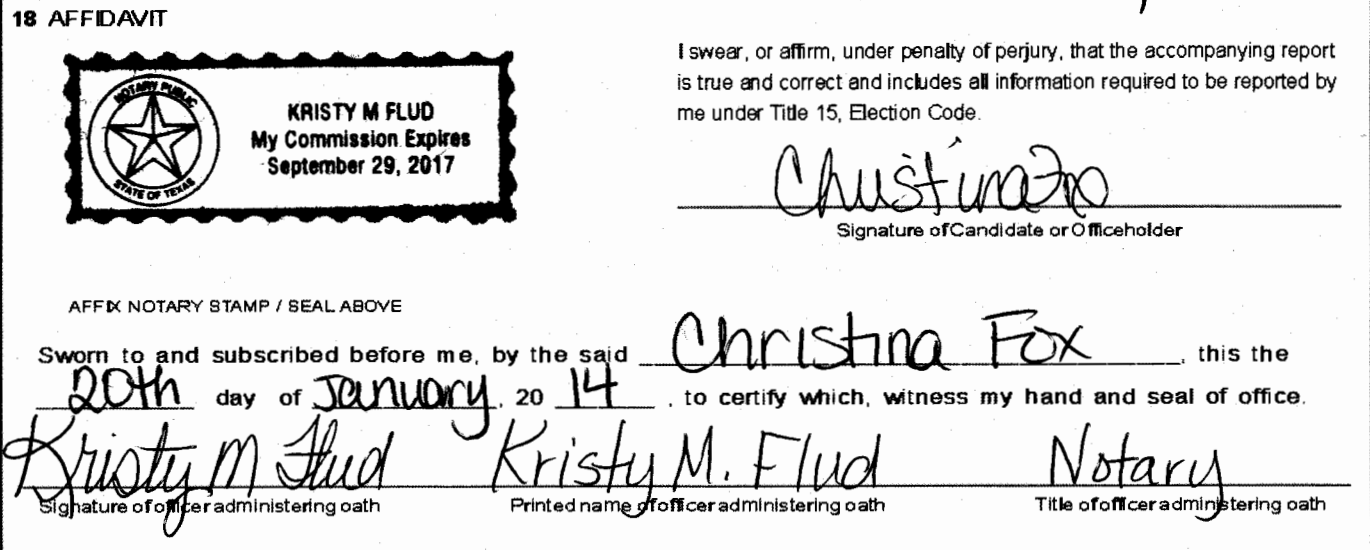 18 AFFIDAVIT
NOTARY PUBLIC
STATE OF TEXAS
KRISTY M FLUD
My Commission Expires
September 29, 2017
I swear, or affirm, under penalty of perjury, that the accompanying report
is true and correct and includes all information required to be reported by
me under Title 15, Election Code.
Christina Fox
Signature of Candidate or Officeholder
AFFIX NOTARY STAMP / SEAL ABOVE
Sworn to and subscribed before me, by the said Christina Fox, this the
20th day of January, 20 14, to certify which, witness my hand and seal of office.
Kristy M Flud Kristy M. Flud Notary
Signature of officer administering oath Printed name of officer administering oath Title of officer administering oath